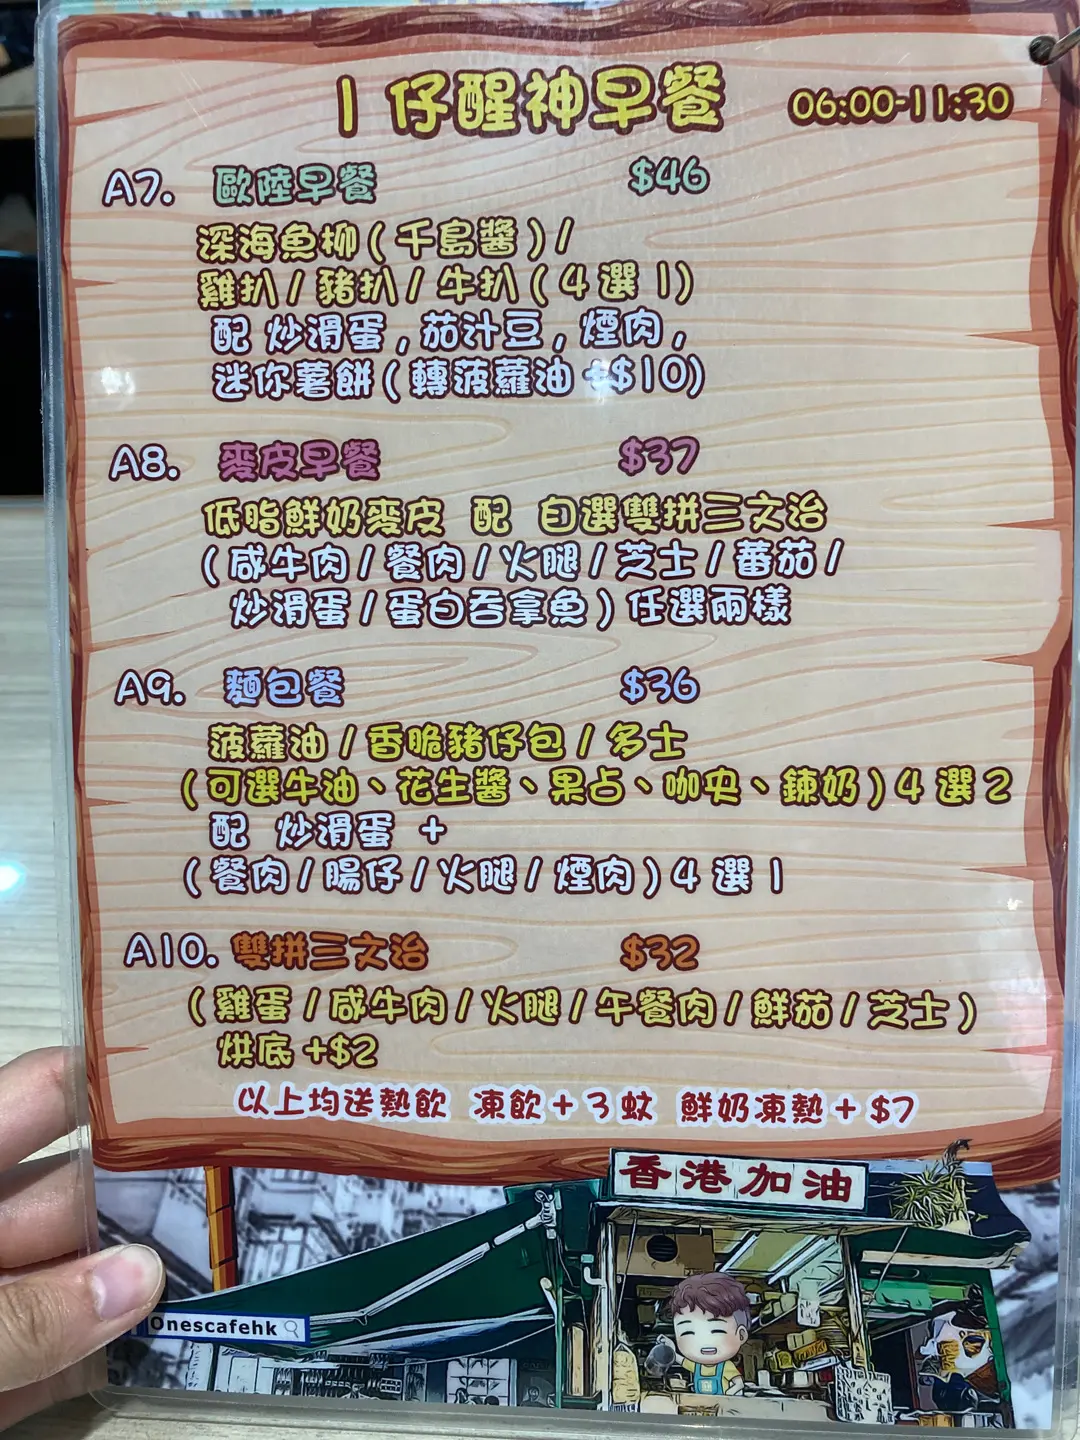 1 仔醒神早餐 06:00-11:30
A7. 歐陸早餐 $46
深海魚柳 ( 千島醬 ) /
雞扒 / 豬扒 / 牛扒 ( 4 選 1 )
配 炒滑蛋 , 茄汁豆 , 煙肉 ,
迷你薯餅 ( 轉菠蘿油 +$10)
A8. 麥皮早餐 $37
低脂鮮奶麥皮 配 自選雙拼三文治
( 咸牛肉 / 餐肉 / 火腿 / 芝士 / 蕃茄 /
炒滑蛋 / 蛋白吞拿魚 ) 任選兩樣
A9. 麵包餐 $36
菠蘿油 / 香脆豬仔包 / 多士
( 可選牛油、花生醬、果占、咖央、鍊奶 ) 4 選 2
配 炒滑蛋 +
( 餐肉 / 腸仔 / 火腿 / 煙肉 ) 4 選 1
A10. 雙拼三文治 $32
( 雞蛋 / 咸牛肉 / 火腿 / 午餐肉 / 鮮茄 / 芝士 )
烘底 +$2
以上均送熱飲 凍飲 + 3 蚊 鮮奶凍熱 + $7
香港加油
Onescafehk